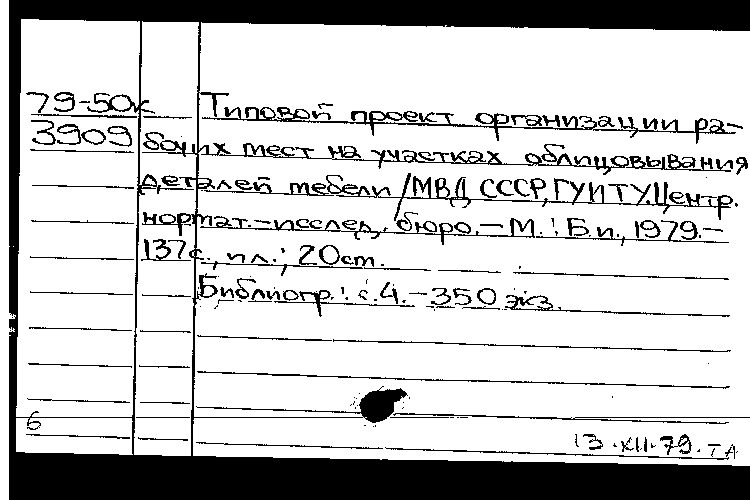 79-50к Типовой проект организации ра-
3909 бочих мест на участках облицовывания
деталей мебели / МВД СССР, ГУИТУ. Центр.
нормат.-исслед. бюро. - М. : Б.и., 1979. -
137с., ил.; 20см.
Библиогр.: с.4. - 350 экз.
6
13.XII.79. ТА